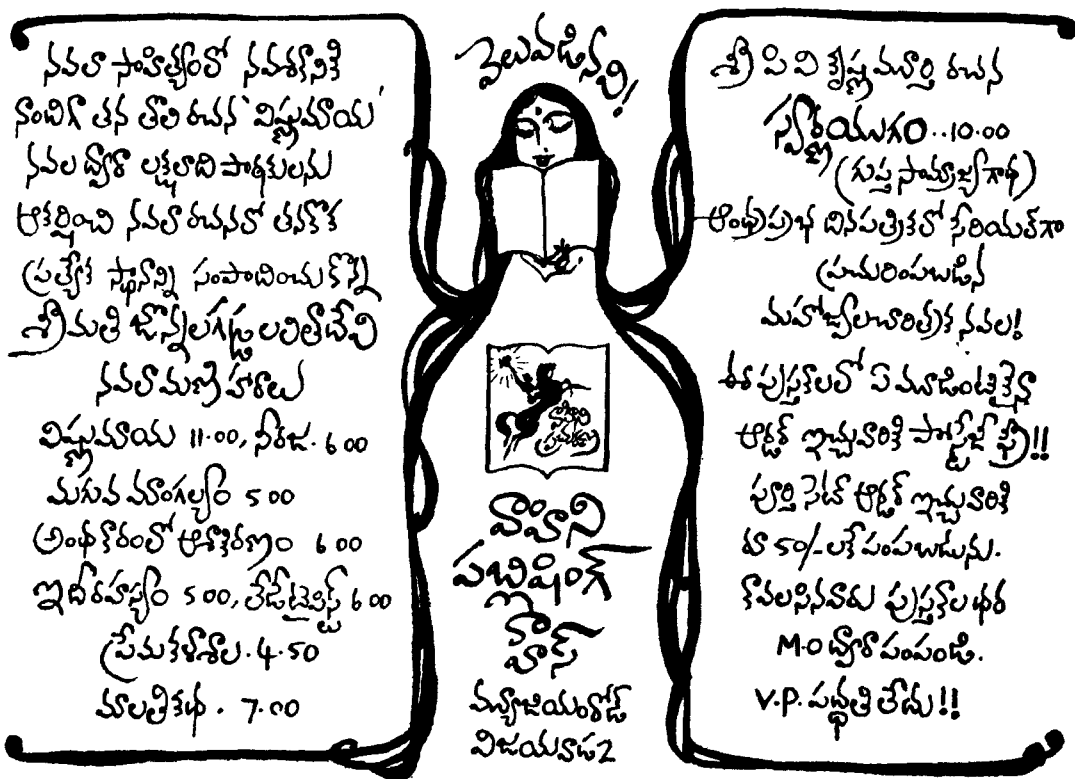 నవలా సాహిత్యంలో నవశకానికి
నాందిగా తన తొలి రచన 'విష్ణుమాయ'
నవల ద్వారా లక్షలాది పాఠకులను
ఆకర్షించి నవలా రచనలో తనకొక
ప్రత్యేక స్థానాన్ని సంపాదించుకొన్న
శ్రీమతి జొన్నలగడ్డ లలితాదేవి
నవలామణి హారాలు
విష్ణుమాయ 11.00, నీరజ. 6 00
మగువ మాంగల్యం 5 00
అంధకారంలో ఆశాకిరణం 6 00
ఇదీ రహస్యం 5 00, లేడీ టైపిస్ట్ 6 00
ప్రేమ కళాశాల . 4.50
మాలతి కథ . 7.00
వెలువడినవి!
వాహిని
ప్రచురణ
వాహిని
పబ్లిషింగ్
హౌస్
మ్యూజియంరోడ్
విజయవాడ 2
శ్రీ పి వి కృష్ణమూర్తి రచన
స్వర్ణయుగం..10.00
(గుప్త సామ్రాజ్య గాథ)
ఆంధ్రప్రభ దినపత్రికలో సీరియల్‌గా
ప్రచురింపబడిన
మహోజ్వల చారిత్రక నవల!
ఈ పుస్తకాలలో ఏ మూడింటికైనా
ఆర్డర్ ఇచ్చువారికి పోస్టేజీ ఫ్రీ!!
పూర్తి సెట్ ఆర్డర్ ఇచ్చువారికి
రూ 50/-లకే పంపబడును.
కావలసినవారు పుస్తకాల ధర
M.O ద్వారా పంపండి.
V.P. పద్ధతి లేదు!!